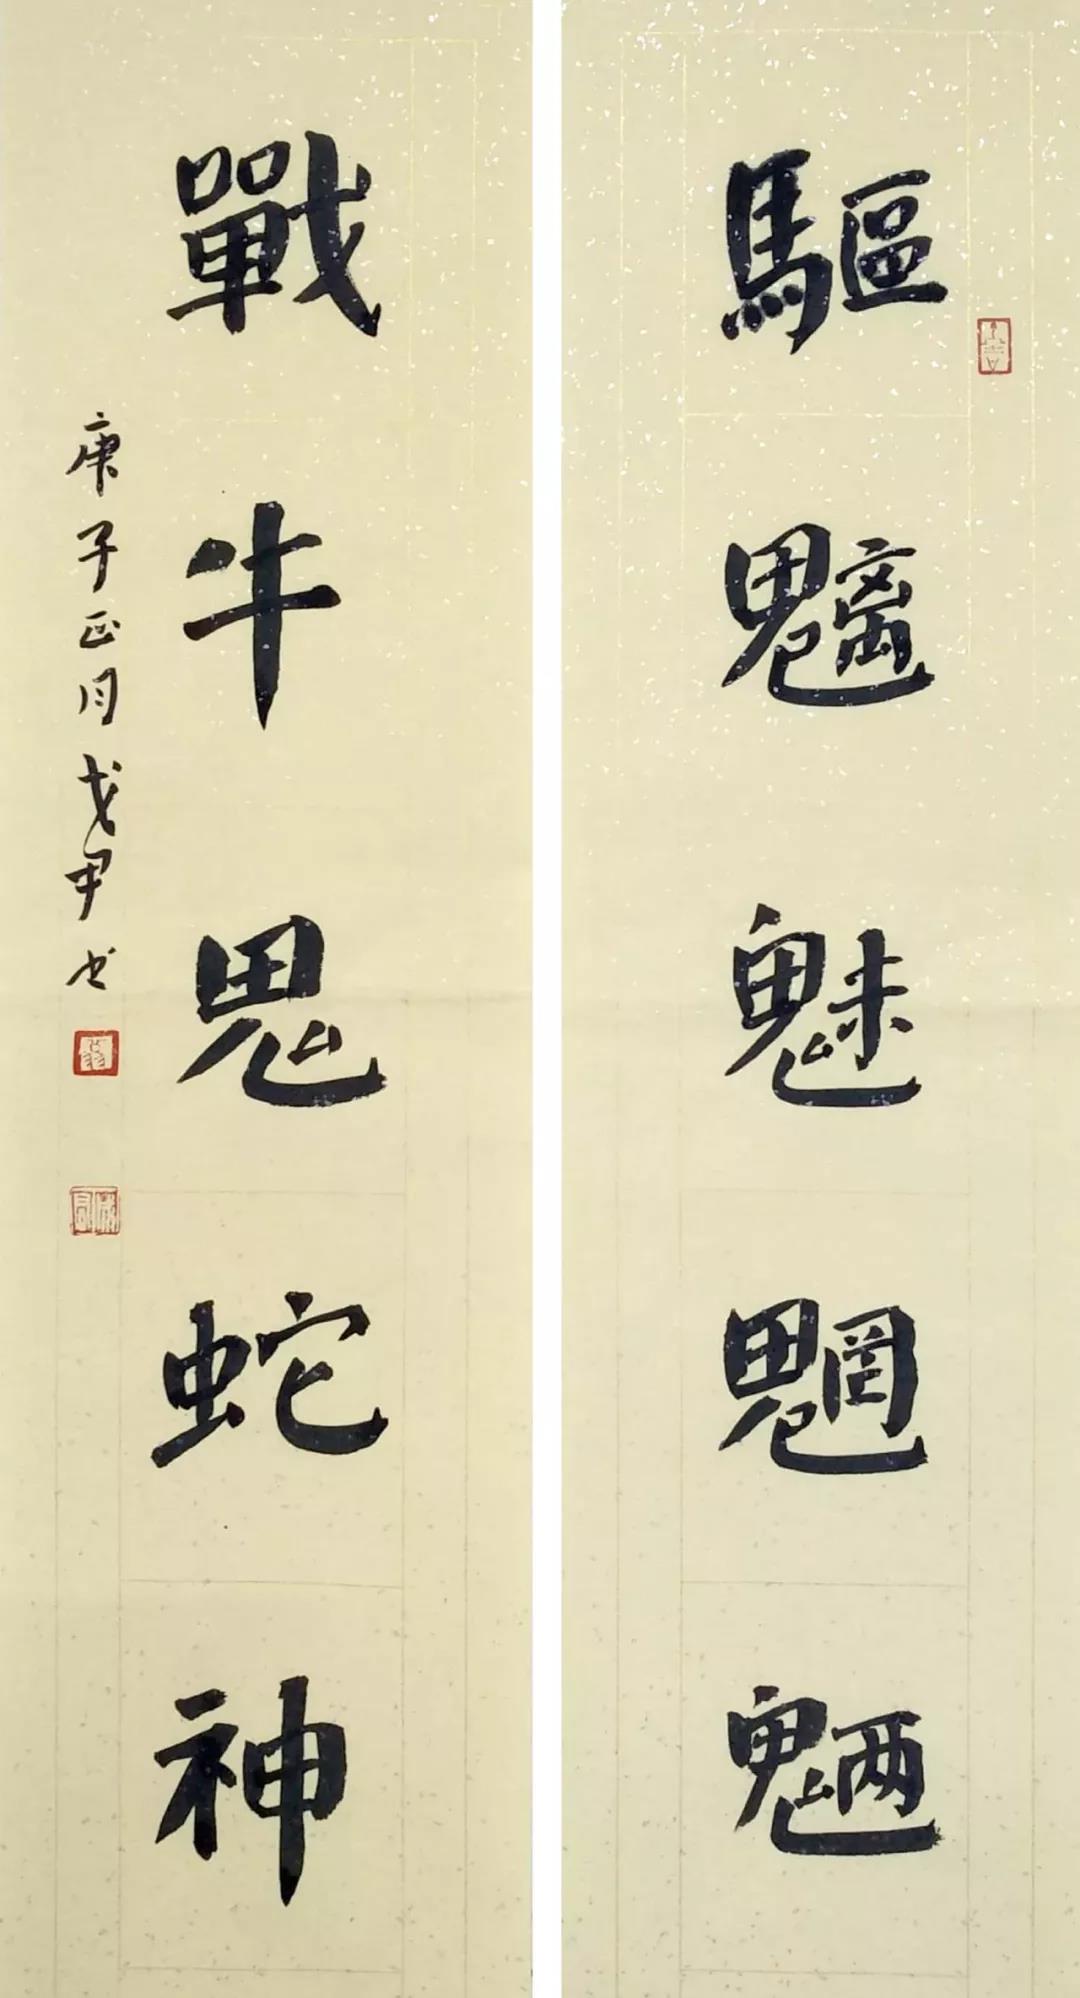 驅魑魅魍魎
戰牛鬼蛇神
庚子正月戈甲书